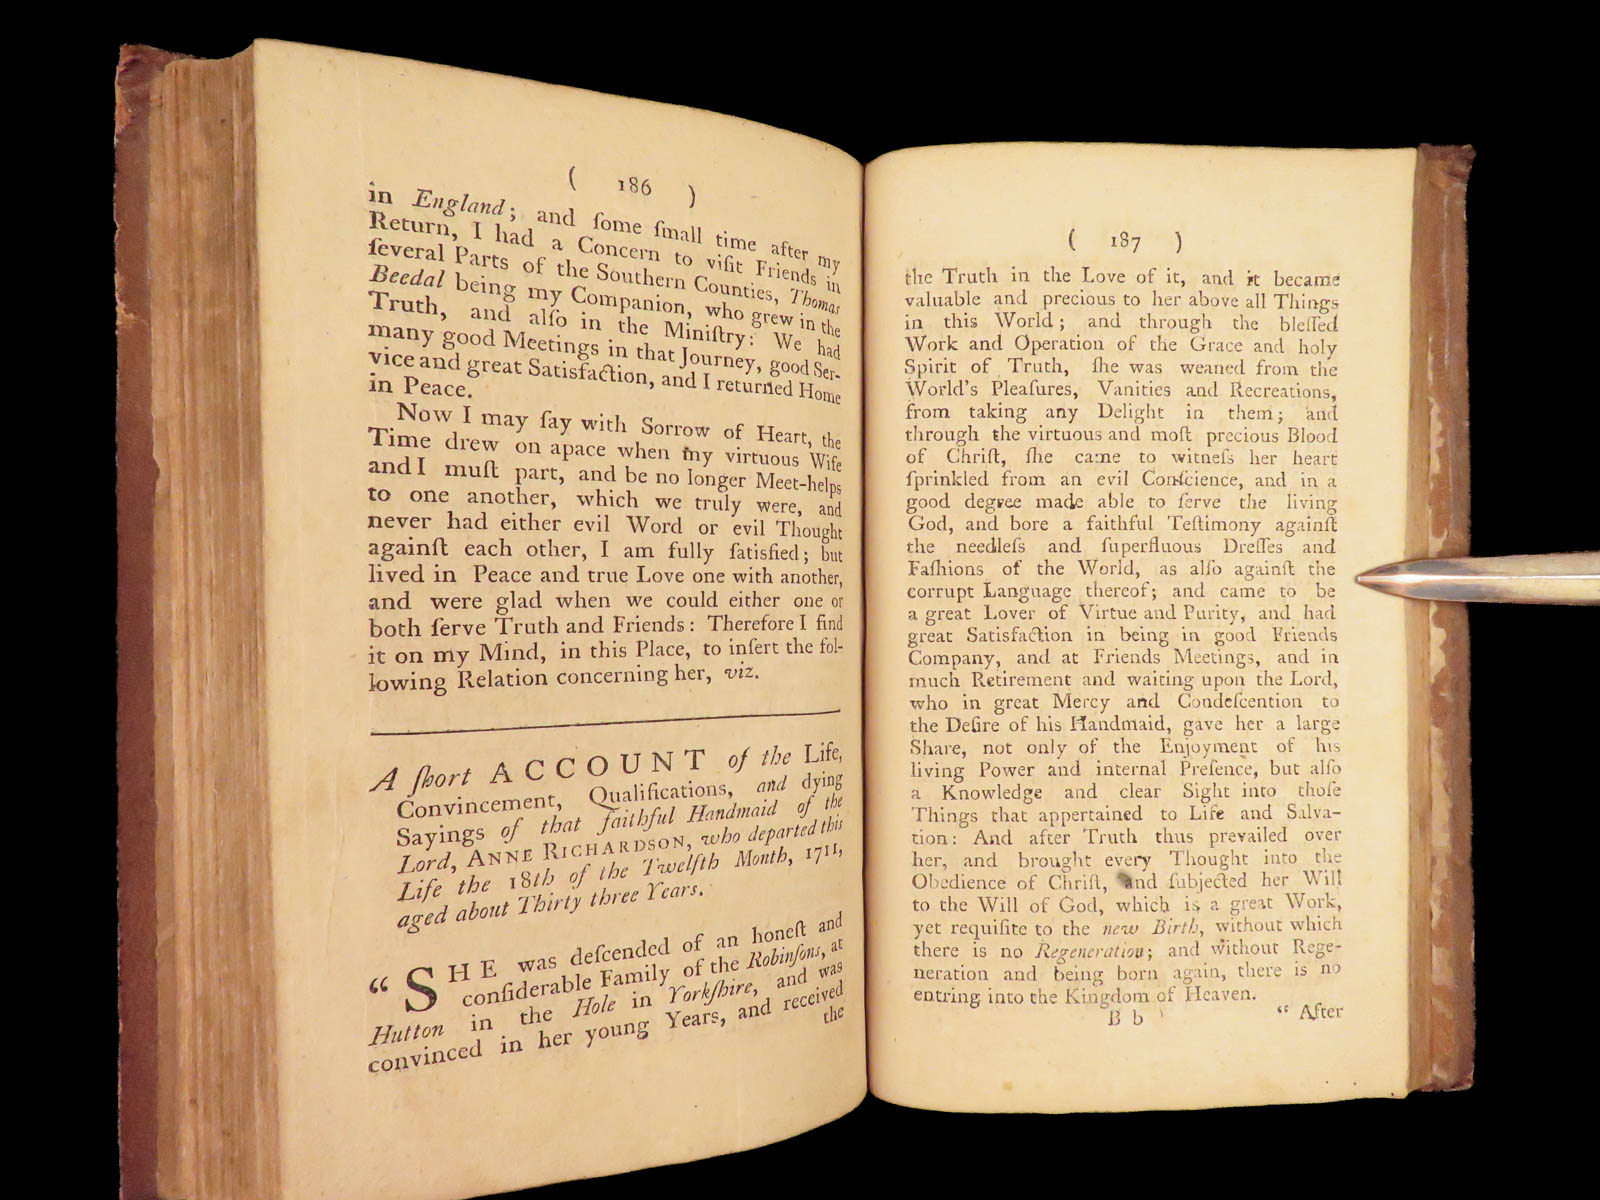 ( 186 )
in England; and ſome ſmall time after my
Return, I had a Concern to viſit Friends in
ſeveral Parts of the Southern Counties, Thomas
Beedal being my Companion, who grew in the
Truth, and alſo in the Miniſtry: We had
many good Meetings in that Journey, good Ser-
vice and great Satisfaction, and I returned Home
in Peace.
Now I may ſay with Sorrow of Heart, the
Time drew on apace when my virtuous Wife
and I muſt part, and be no longer Meet-helps
to one another, which we truly were, and
never had either evil Word or evil Thought
againſt each other, I am fully ſatisfied; but
lived in Peace and true Love one with another,
and were glad when we could either one or
both ſerve Truth and Friends: Therefore I find
it on my Mind, in this Place, to inſert the fol-
lowing Relation concerning her, viz.
A ſhort ACCOUNT of the Life,
Convincement, Qualifications, and dying
Sayings of that faithful Handmaid of the
Lord, ANNE RICHARDSON, who departed this
Life the 18th of the Twelfth Month, 1711,
aged about Thirty three Years.
“ SHE was deſcended of an honeſt and
conſiderable Family of the Robinſons, at
Hutton in the Hole in Yorkſhire, and was
convinced in her young Years, and received
the
( 187 )
the Truth in the Love of it, and it became
valuable and precious to her above all Things
in this World; and through the bleſſed
Work and Operation of the Grace and holy
Spirit of Truth, ſhe was weaned from the
World's Pleaſures, Vanities and Recreations,
from taking any Delight in them; and
through the virtuous and moſt precious Blood
of Chriſt, ſhe came to witneſs her heart
ſprinkled from an evil Conſcience, and in a
good degree made able to ſerve the living
God, and bore a faithful Teſtimony againſt
the needleſs and ſuperfluous Dreſſes and
Faſhions of the World, as alſo againſt the
corrupt Language thereof; and came to be
a great Lover of Virtue and Purity, and had
great Satisfaction in being in good Friends
Company, and at Friends Meetings, and in
much Retirement and waiting upon the Lord,
who in great Mercy and Condeſcention to
the Deſire of his Handmaid, gave her a large
Share, not only of the Enjoyment of his
living Power and internal Preſence, but alſo
a Knowledge and clear Sight into thoſe
Things that appertained to Life and Salva-
tion: And after Truth thus prevailed over
her, and brought every Thought into the
Obedience of Chriſt, and ſubjected her Will
to the Will of God, which is a great Work,
yet requiſite to the new Birth, without which
there is no Regeneration; and without Rege-
neration and being born again, there is no
entring into the Kingdom of Heaven.
B b “ After